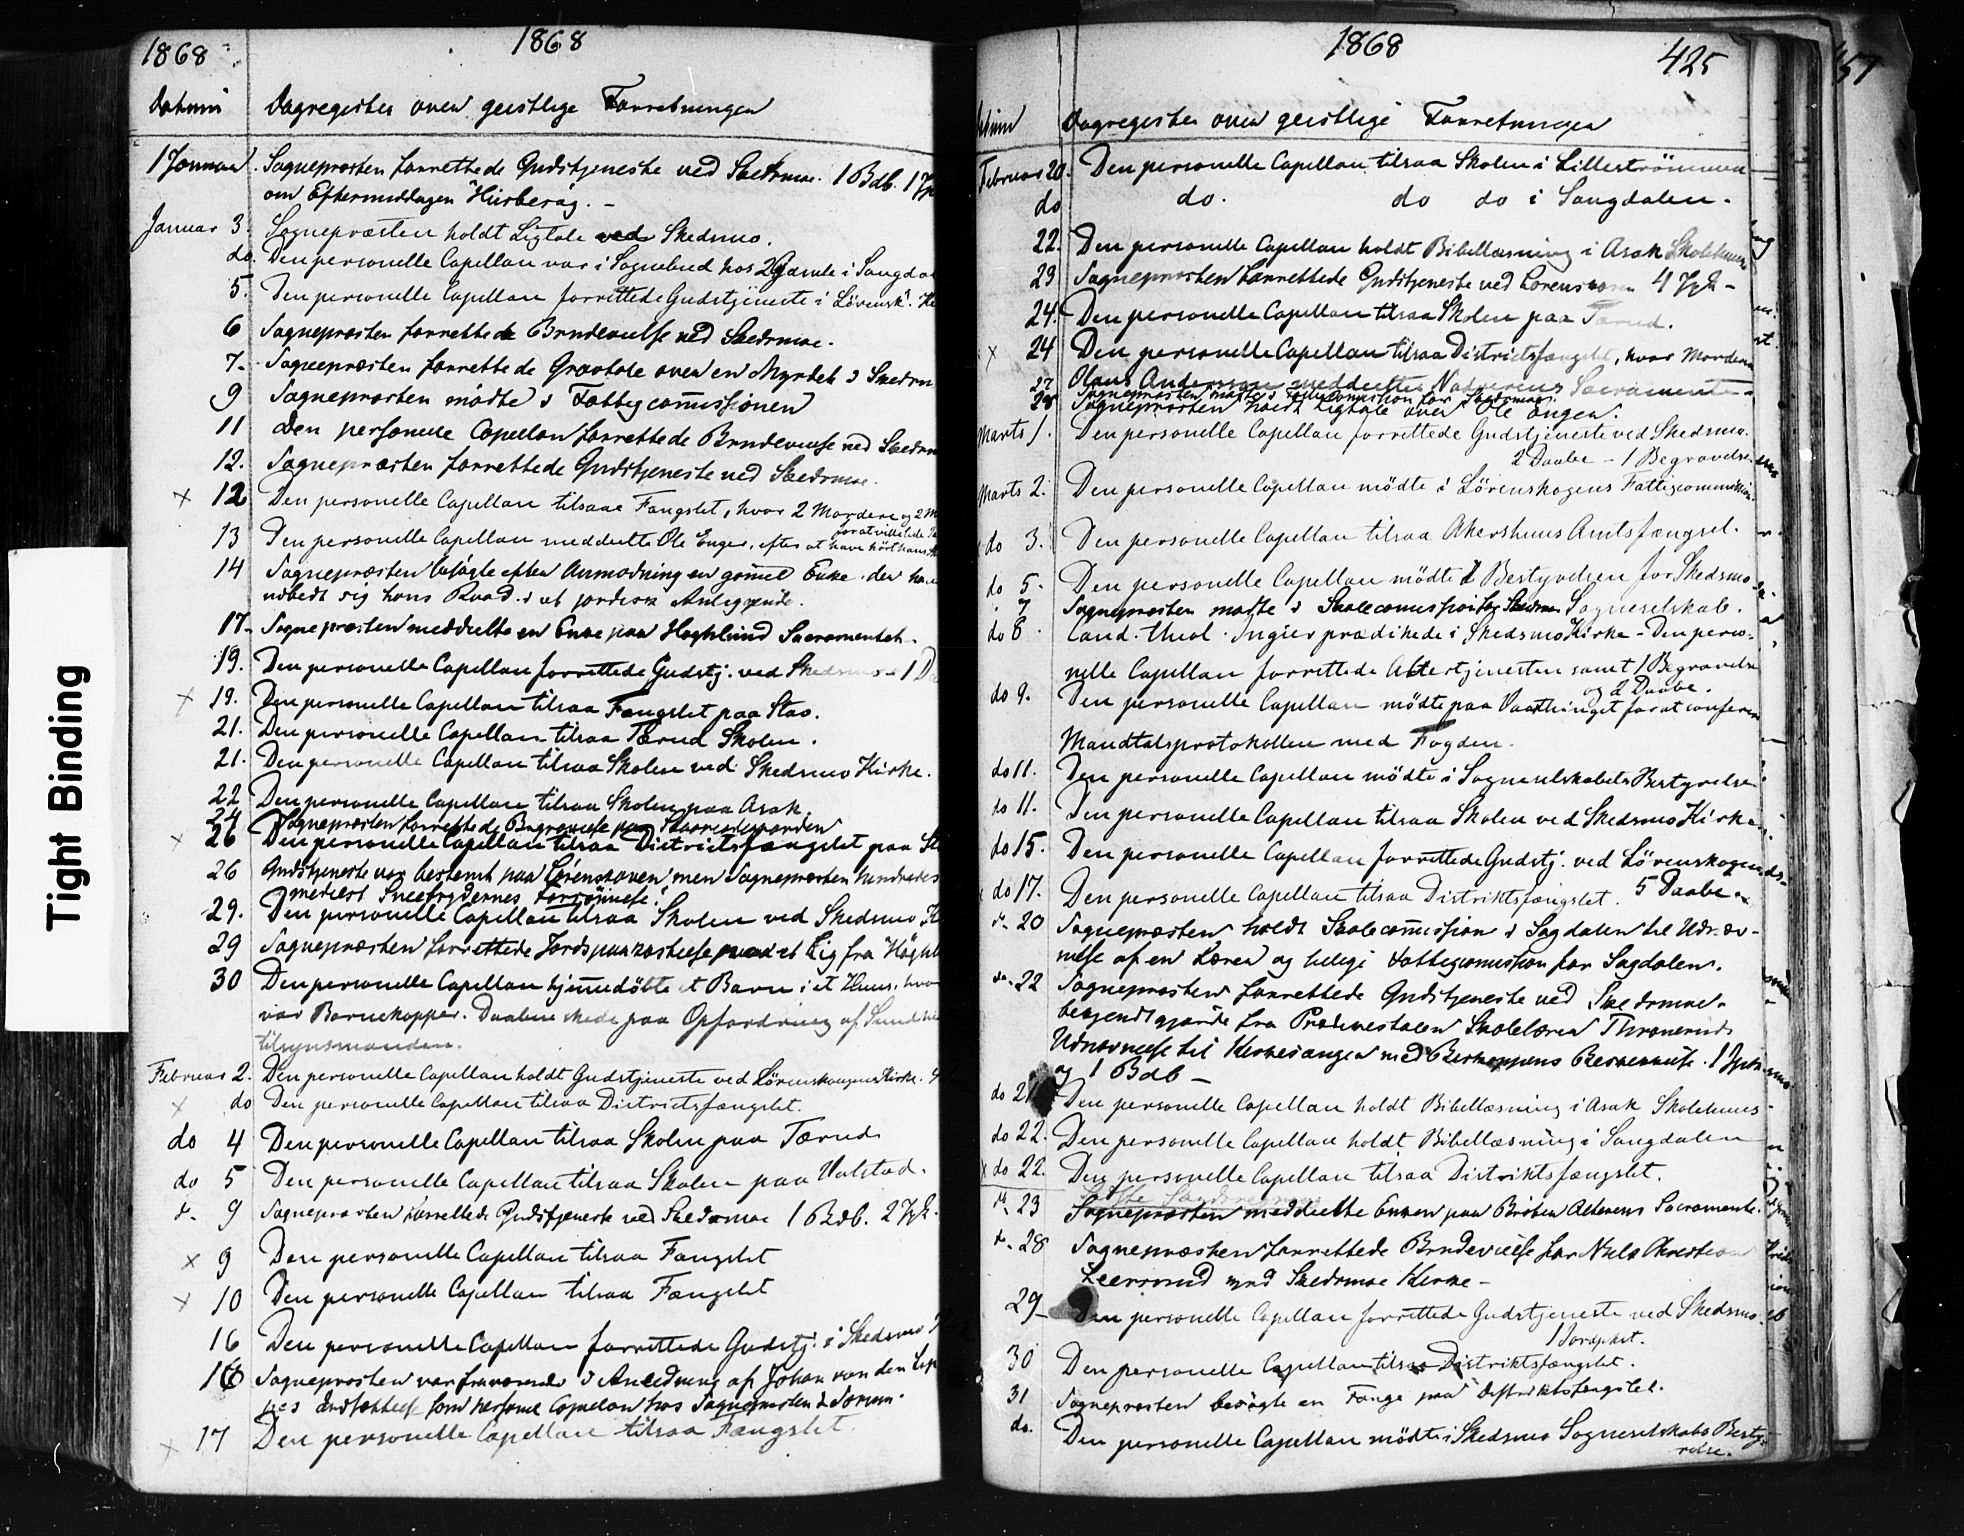 Tight Binding
1868
1868
Datum
Dagregister over geistlige Forretninger
1 Januar Sognepræsten forrettede Gudstjeneste ved Skedsmoe. 1 Bdb. 1
om Eftermiddagen
Januar 3. Sognepræsten holdt Ligtale ved Skedsmo.
do. Den personelle Capellan var i Sognebud hos 2 Gamle i
5. Den personelle Capellan forrettede Gudstjeneste i Lörensk.
6 Sognepræsten forrettede Brudevielse ved Skedsmoe.
7. Sognepræsten forrettede Gravtale over en Myrdet i
9 Sognepræsten mödte i Fattigcommissionen
11 Den personelle Capellan forrettede Brudevielse ved
12. Sognepræsten forrettede Gudstjeneste ved Skedsmoe.
x 12 Den personelle Capellan tilsaae Fangslet, hvor 2 Mordere og 2
13 Den personelle Capellan meddeelte Ole Enger, efter at have hört hans
14 Sognepræsten besögte efter Anmodning en gammel Enke, der
udbedt sig hans Raad i et
17- Sognepræsten meddeelte en Enke paa Sacramentet.
19. Den personelle Capellan forrettede Gudstj. ved Skedsmo - 1 D
x 19. Den personelle Capellan tilsaa Fængslet paa Stav.
21. Den personelle Capellan tilsaa Tærud Skolen.
21. Den personelle Capellan tilsaa Skolen ved Skedsmo Kirke.
22 Den personelle Capellan tilsaa Skolen paa Asak
24 Sognepræsten forrettede
x 26 Den personelle Capellan tilsaa Districtsfængslet paa
26 Gudstjeneste var bestemt paa men Sognepræsten hindredes
29. Den personelle Capellan tilsaa Skolen ved Skedsmo
29 Sognepræsten forrettede Jordspaakastelse paa et Lig fra
30 Den personelle Capellan hjemmedöbte et Barn i et Huus, hvor
var Barnekopper. Daaben skede paa Opfordring af
tilsynsmanden.
Februar 2. Den personelle Capellan holdt Gudstjeneste ved Lörenskougens Kirke.
x do Den personelle Capellan tilsaa Districtsfængslet.
do 4 Den personelle Capellan tilsaa Skolen paa Tærud
do 5 Den personelle Capellan tilsaa Skolen paa Valstad.
d. 9 Sognepræsten forrettede Gudstjeneste ved Skedsmoe 1 Bdb. 2
x 9 Den personelle Capellan tilsaa Fangslet
x 10 Den personelle Capellan tilsaa Fængslet
16 Den personelle Capellan forrettede Gudstj. i Skedsmo
16 Sognepræsten var fraværende i Anledning af Johan van den
som personel Capellan hos Sognepræsten i Sörum.
x 17 Den personelle Capellan tilsaa Fængslet.
1868
425
Dagregister over geistlige Forretninger
Februar 20. Den personelle Capellan tilsaa Skolen i Lilleströmmen
do do. do do i Sangdalen.
22. Den personelle Capellan holdt Bibellæsning i Asak Skolehuus
23 Sognepræsten forrettede Gudstjeneste ved Lorenskoven 4
24. Den personelle Capellan tilsaa Skolen paa Tærud.
x 24 Den personelle Capellan tilsaa Districtsfængslet, hvor Morderen
Olaus Anderssen meddeeltes Nadverens Sacramente.
27 Sognepræsten mödte i
28 Sognepræsten holdt Ligtale over Ole
Marts 1. Den personelle Capellan forrettede Gudstjeneste ved Skedsmo.
2 Daabe - 1 Begravelse
Marts 2. Den personelle Capellan mödte i Lörenskogens Fattigcommission.
do 3. Den personelle Capellan tilsaa Akershuus Amtsfængsel.
do 5. Den personelle Capellan mödte i Bestyrelsen for Skedsmo
Sogneselskab.
7 Sognepræsten mödte i Skolecommission
do 8. Cand. theol. Ingier prædikede i Skedsmo Kirke - Den perso-
nelle Capellan forrettede Altertjenesten samt 1 Begravelse
og 2 Daabe.
do 9. Den personelle Capellan mödte paa Vaarthinget for at conferere
Mandtalsprotokollen med Fogden.
do 11. Den personelle Capellan mödte i Sogneselskabets Bestyrelse
do 11. Den personelle Capellan tilsaa Skolen ved Skedsmo Kirke
do 15. Den personelle Capellan forrettede Gudstj. ved Lörenskogen
5 Daabe
do 17. Den personelle Capellan tilsaa Distriktsfængslet.
d. 20 Sognepræsten holdt Skolecommission i Sagdalen til Udnæv-
nelse af en Lærer og tillige Fattigcommission for Sagdalen.
d. 22 Sognepræsten forrettede Gudstjeneste ved Skedsmoe.
bekjendtgjorde fra Prædikestolen Skolelærer
Udnævnelse til Kirkesanger 1
og 1 Bdb -
do 21 Den personelle Capellan holdt Bibellæsning i Asak Skolehuus
do 22. Den personelle Capellan holdt Bibellæsning i Sangdalen
x do 22. Den personelle Capellan tilsaa Distriktsfængslet.
d. 23 Sognepræsten meddeelte Enken paa Alterens Sacramente.
d. 28 Sognepræsten forrettede Brudevielse for Niels
ved Skedsmoe Kirke -
29- Den personelle Capellan forrettede Gudstjeneste ved Skedsmo.
1 Jordpkst.
30 Den personelle Capellan tilsaa Distriktsfængslet.
31 Sognepræsten besögte en Fange paa Distriktsfængslet.
do. Den personelle Capellan mödte i Skedsmo Sogneselskabs Besty-
relse.